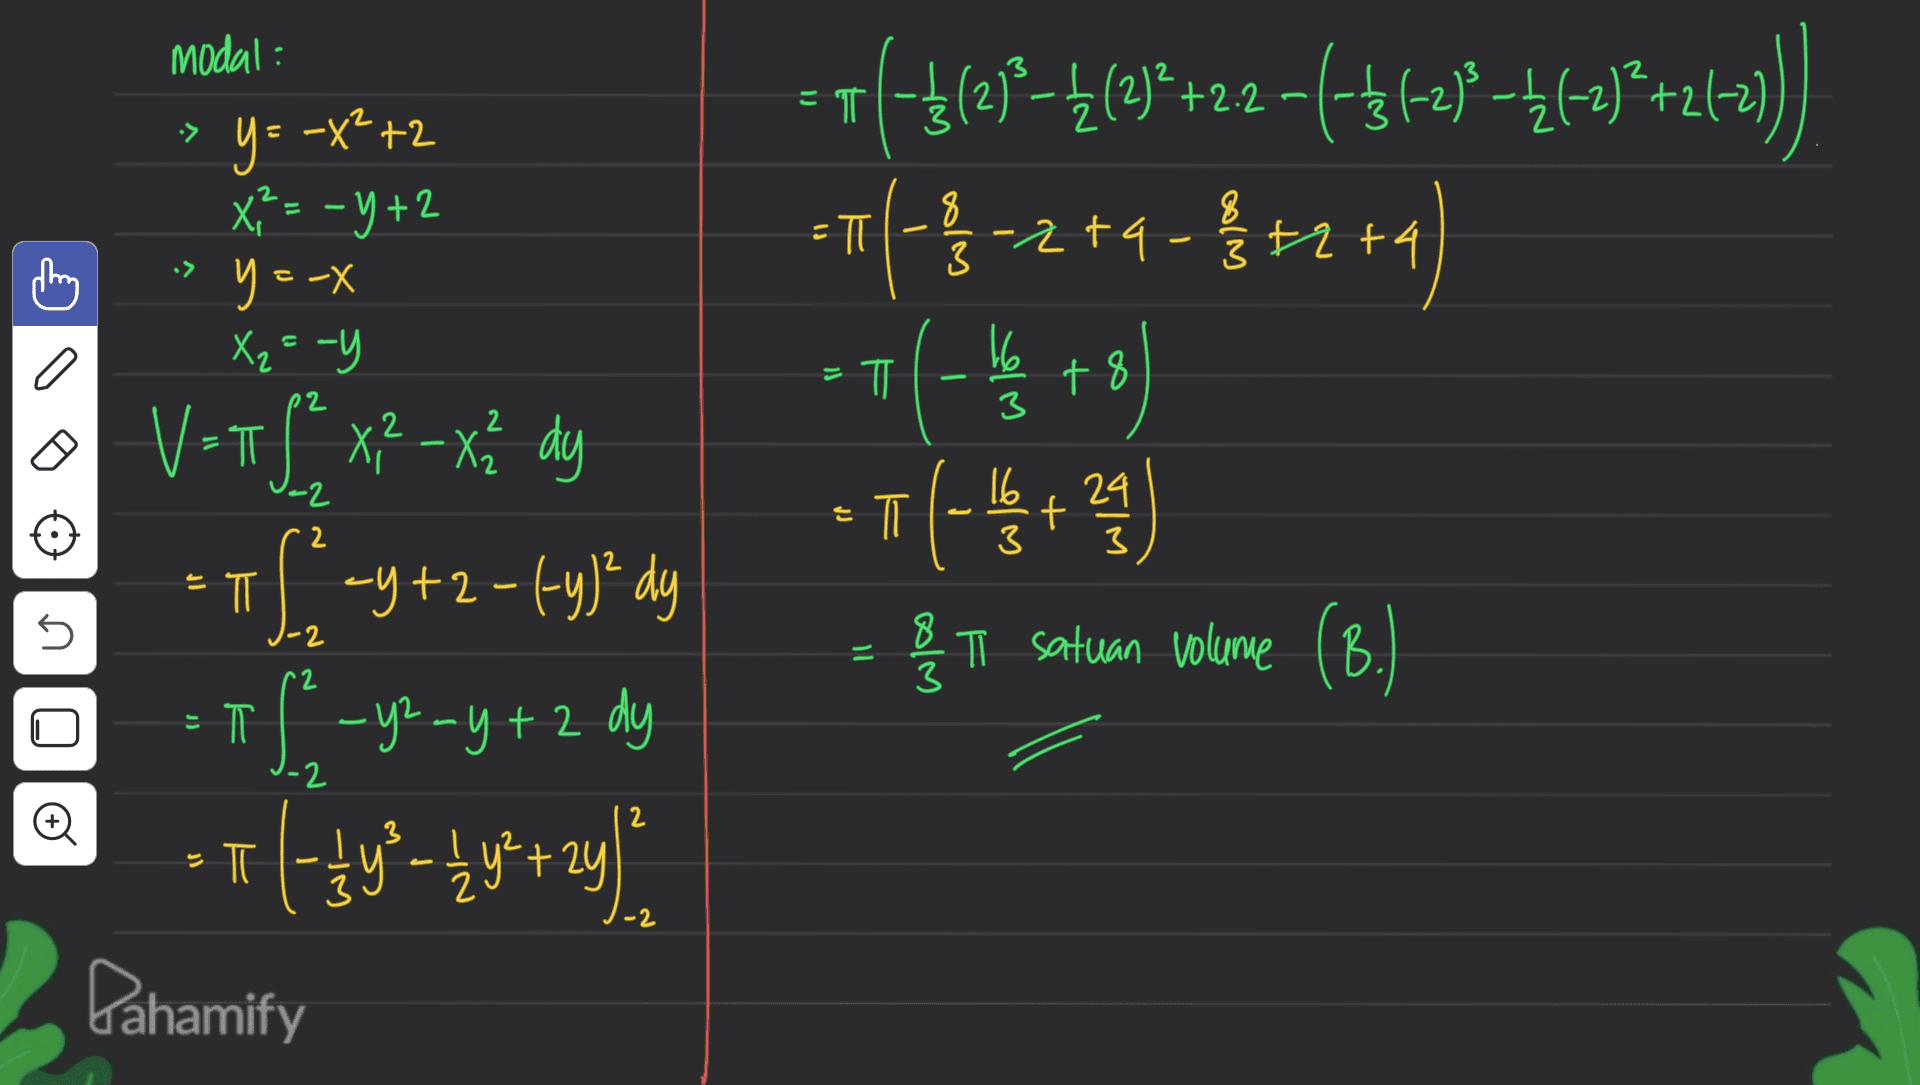 modal :
·> y = -x² + 2
x₁² = -y + 2
·> y = -x
x₂ = -y
V = π ∫₋₂² x₁² - x₂² dy
= π ∫₋₂² -y + 2 - (-y)² dy
= π ∫₋₂² -y² - y + 2 dy
= π (-1/3 y³ - 1/2 y² + 2y)|₋₂²
= π (-1/3 (2)³ - 1/2 (2)² + 2.2 - (-1/3 (-2)³ - 1/2 (-2)² + 2(-2)))
= π (-8/3 - 2 + 4 - 8/3 + 2 + 4)
= π (-16/3 + 8)
= π (-16/3 + 24/3)
= 8/3 π satuan volume (B.)
Pahamify